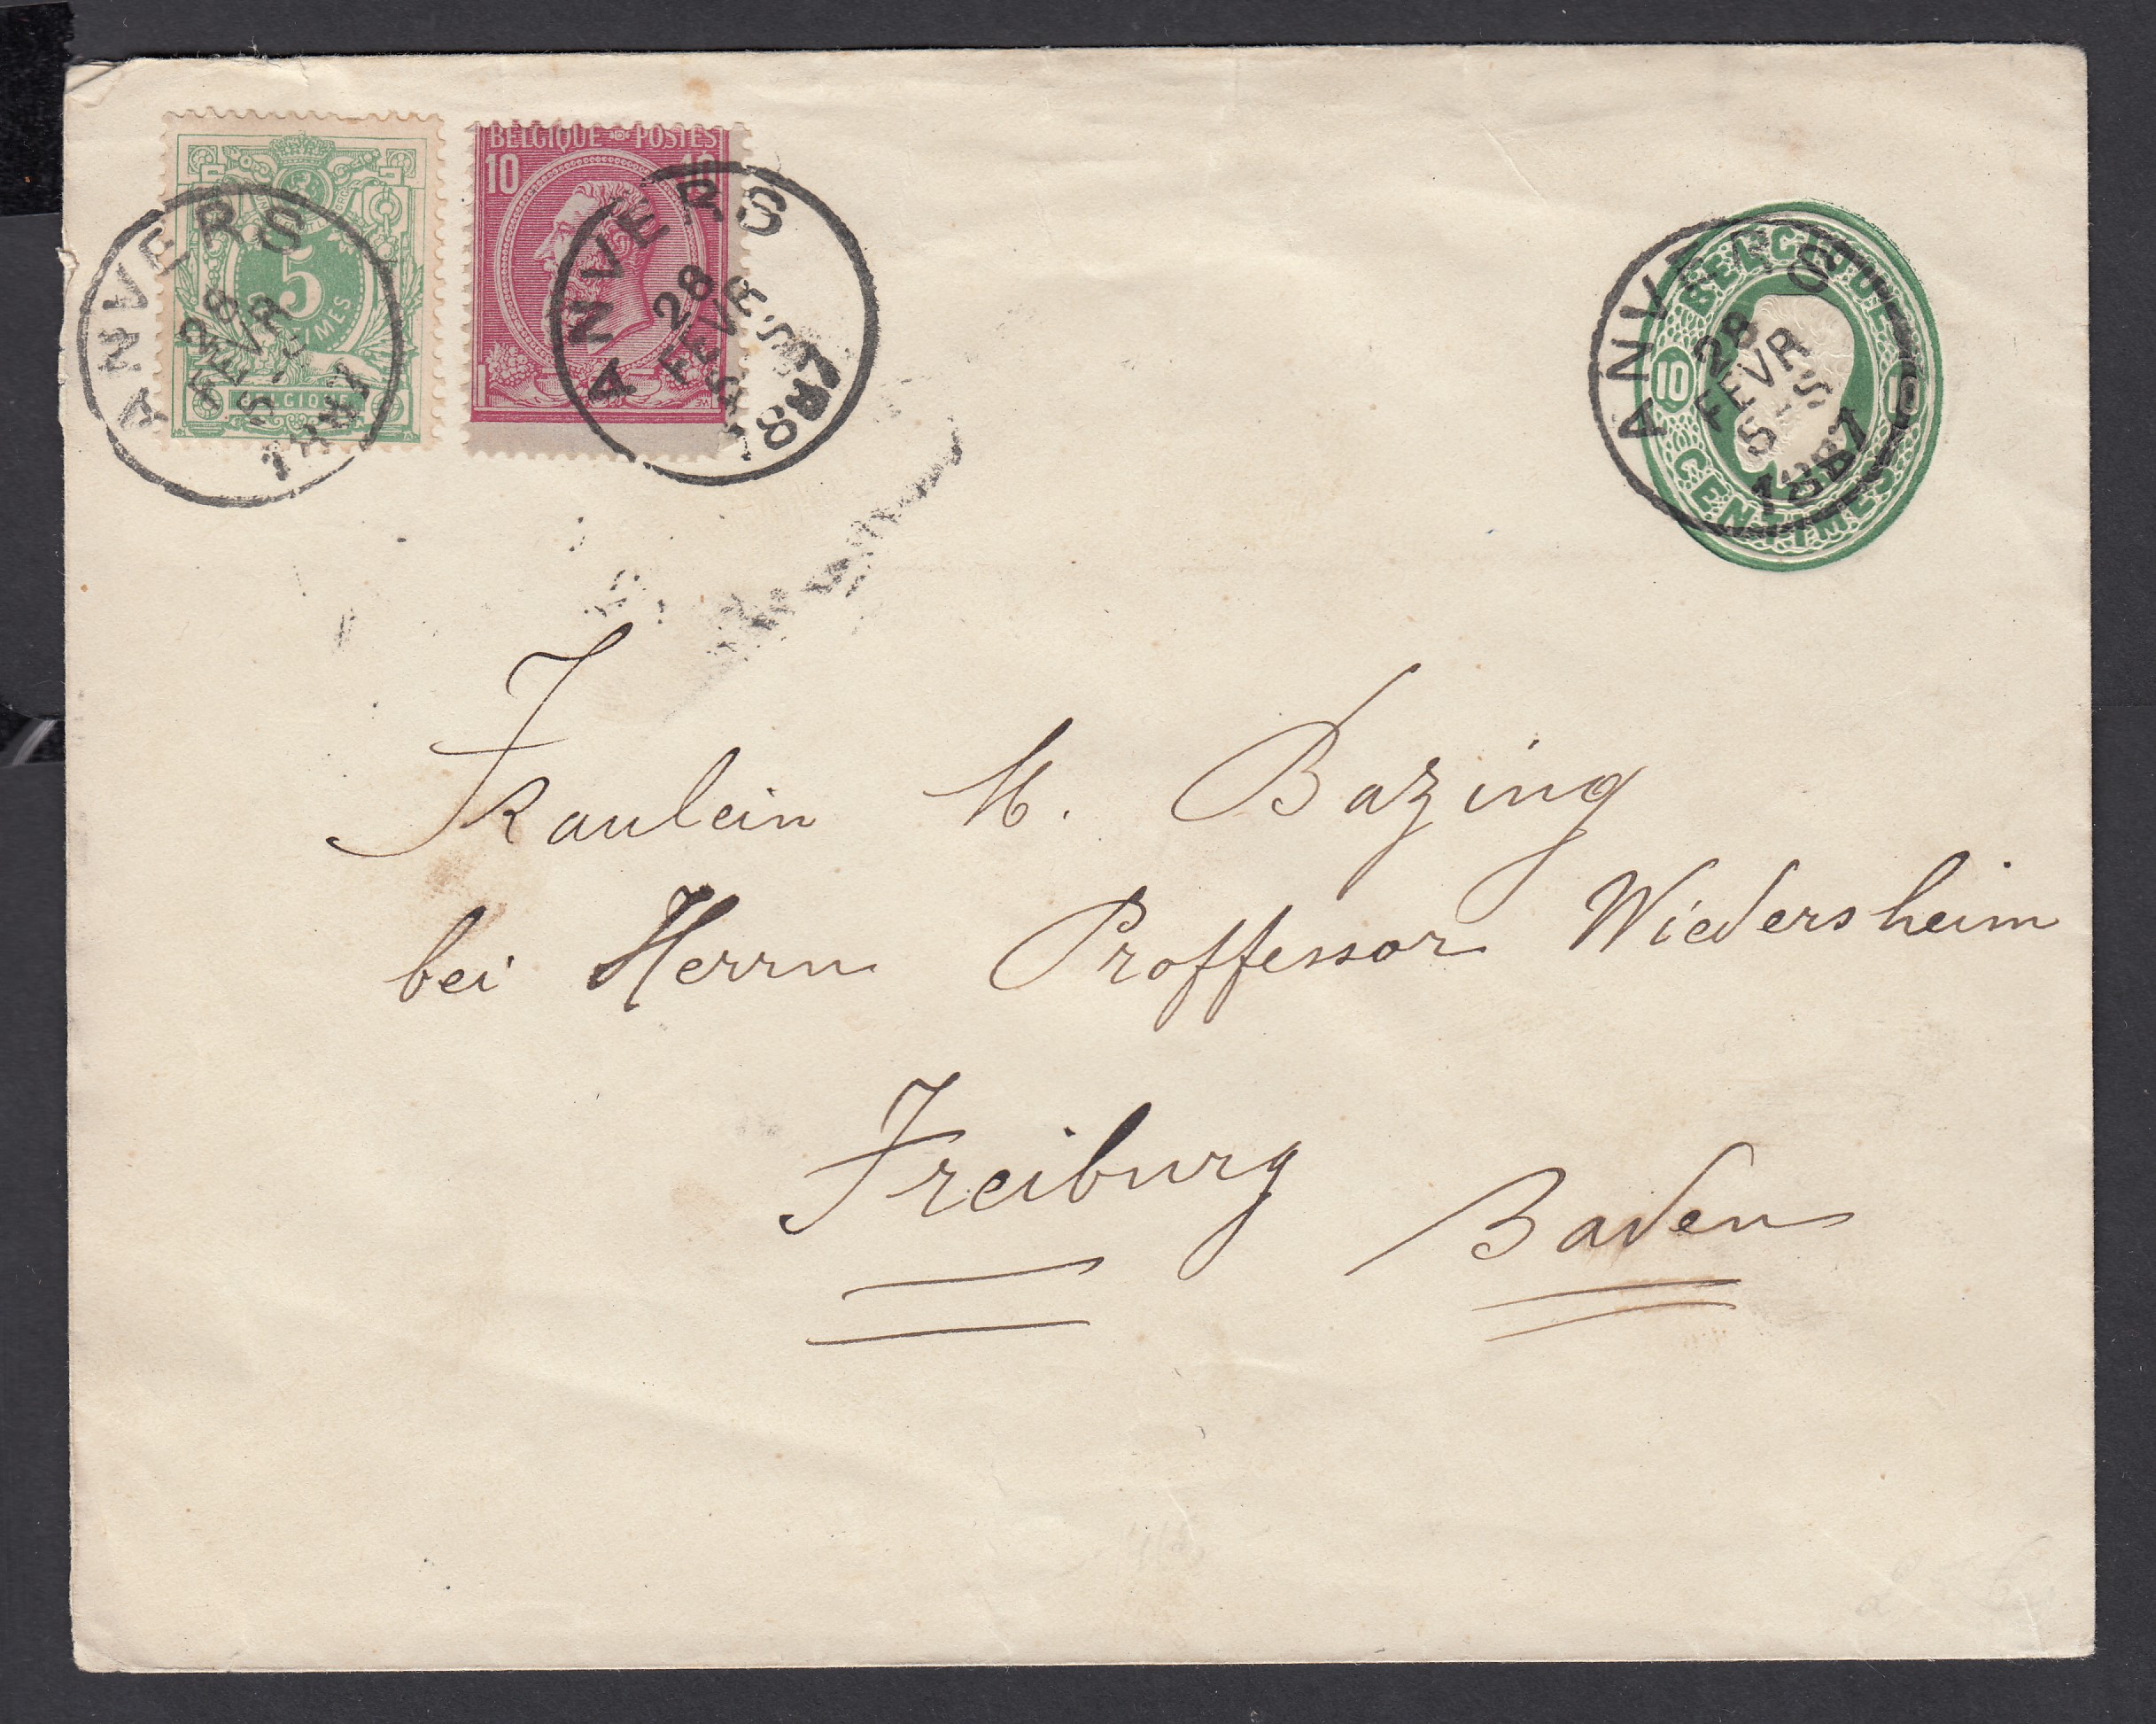 BELGIQUE POSTES
10 10
5
CENTIMES
BELGIQUE
ANVERS
28
FEVR
5-S
1887
ANVERS
28
FEVR
5-S
1887
BELGIQUE
10 10
CENTIMES
ANVERS
28
FEVR
5-S
1887
Fraulein M. Bazing
bei Herrn Proffessor Wiedersheim
Freiburg Baden